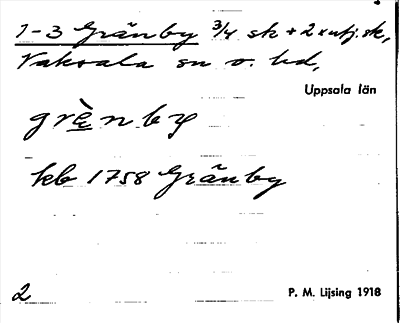 1-3 Gränby 3/4 sk + 2 x utj. sk,
Vaksala sn o. hd,
Uppsala län
grè̱nby
kb 1758 Gränby
2 P. M. Lijsing 1918